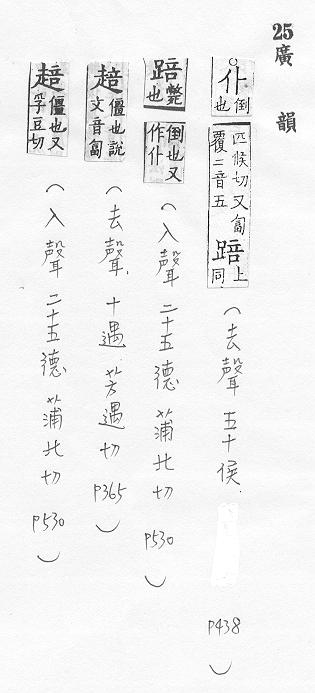 25 廣韻
○仆倒也 匹候切又匐覆二音五 踣上同（去聲 五十侯 P438）
踣斃也 倒也又作仆（入聲 二十五德 蒲北切 P530）
䞳僵也說文音匐（去聲 十遇 芳遇切 P365）
䞳僵也又孚豆切（入聲 二十五德 蒲北切 P530）